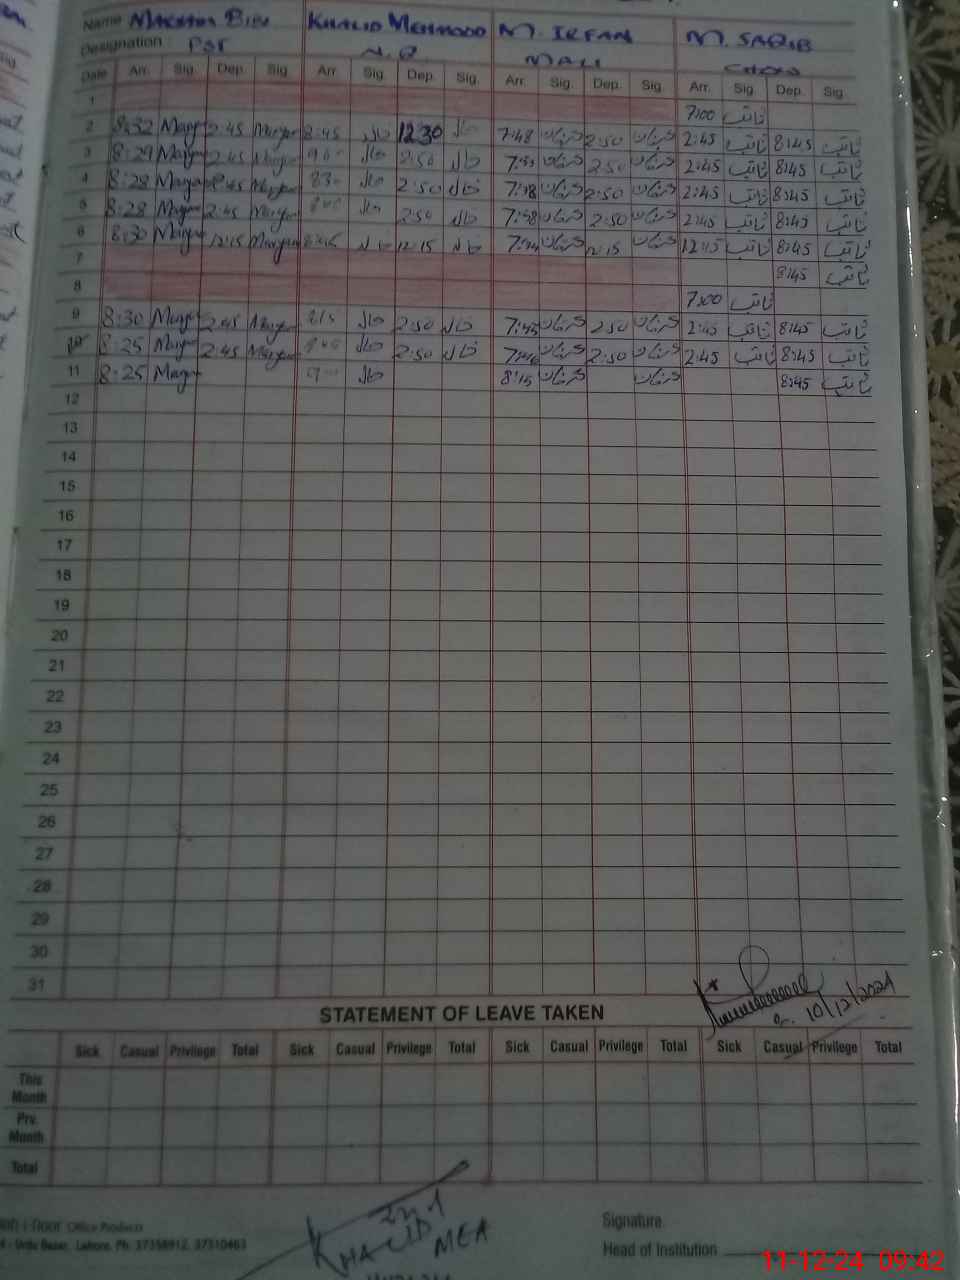 Name Bibi KHALID MEHMOOD M. IRFAN M. SAQIB
Designation PST N.Q MALI
Date Arr. Sig. Dep. Sig. Arr. Sig. Dep. Sig. Arr. Sig. Dep. Sig. Arr. Sig. Dep. Sig.
1 7:00 ثاقب
2 8:32 Maryam 2:45 Maryam 8:45 خالد 12:30 خالد 7:48 عرفان 2:50 عرفان 2:45 ثاقب 8:45 ثاقب
3 8:29 Maryam 2:45 Maryam 2:50 خالد عرفان 2:50 عرفان 2:45 ثاقب 8:45 ثاقب
4 8:28 Maryam 2:45 Maryam 830 خالد 2:50 خالد 7:38 عرفان 2:50 عرفان 2:45 ثاقب 8:45 ثاقب
5 8:28 Maryam 2:45 Maryam خالد 2:50 خالد 7:58 عرفان 2:50 عرفان 2:45 ثاقب 8:45 ثاقب
6 8:30 Maryam 12:15 Maryam خالد 12:15 خالد عرفان 12:15 عرفان 12:45 ثاقب 8:45 ثاقب
7 8:45 ثاقب
8 7:00 ثاقب
9 8:30 Maryam 2:45 Maryam 815 خالد 2:50 خالد 7:45 عرفان 2:50 عرفان 2:45 ثاقب 8:45 ثاقب
10 8:25 Maryam 2:45 Maryam خالد 2:50 خالد 7:46 عرفان 2:50 عرفان 2:45 ثاقب 8:45 ثاقب
11 8:25 Maryam خالد 8:15 عرفان عرفان 8:45 ثاقب
12
13
14
15
16
17
18
19
20
21
22
23
24
25
26
27
28
29
30
31
10/12/2024
STATEMENT OF LEAVE TAKEN
Sick Casual Privilege Total Sick Casual Privilege Total Sick Casual Privilege Total Sick Casual Privilege Total
This Month
Prv. Month
Total
KHALID MEA
Office Products
Urdu Bazar, Lahore. Ph: 37358912, 37310463
Signature
Head of Institution
11-12-24 09:42